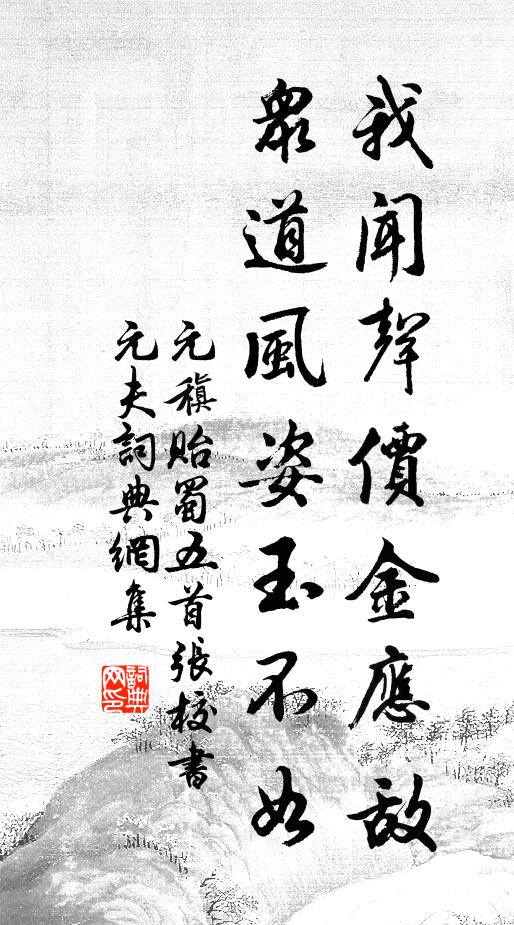 我聞聲價金應敵
眾道風姿玉不如
元稹貽蜀五首張校書
元夫詞典網集
詞典網印